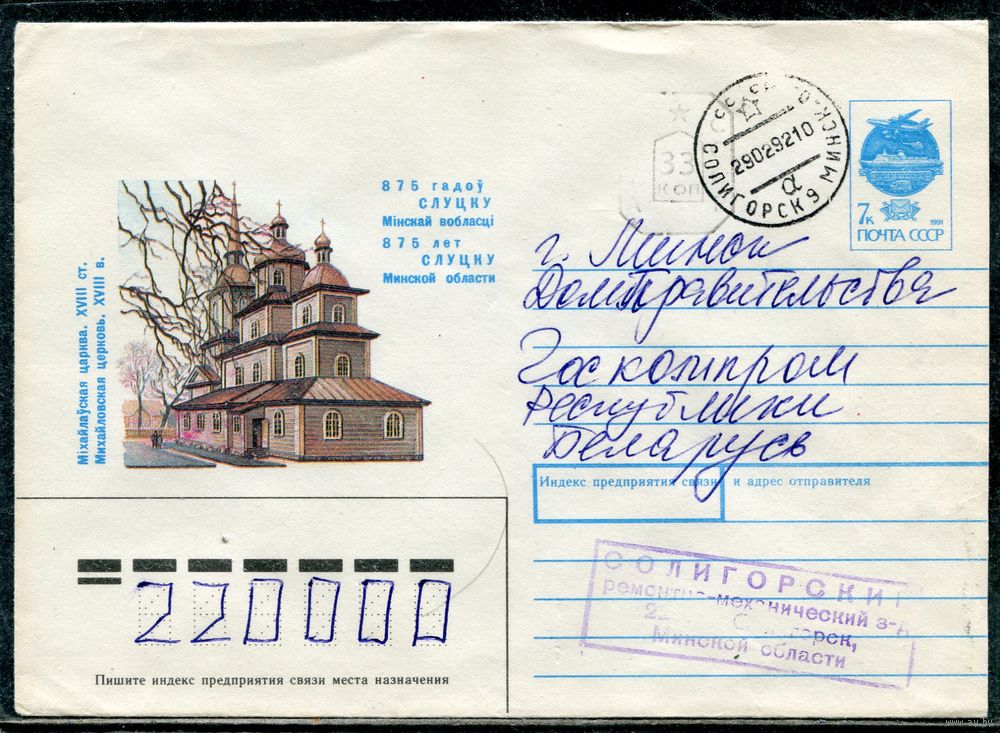 875 гадоў
СЛУЦКУ
Мінскай вобласці
875 лет
СЛУЦКУ
Минской области
Міхайлаўская царква. XVIII ст.
Михайловская церковь. XVIII в.
33
КОП
СОЛИГОРСК 9 МИНСК
29029210
а
7к
1991
ПОЧТА СССР
г. Минск
Дом Правительства
Госкомпром
Республики
Беларусь
Индекс предприятия связи и адрес отправителя
СОЛИГОРСКИ
ремонтно-механический з-д
Минской области
220000
Пишите индекс предприятия связи места назначения